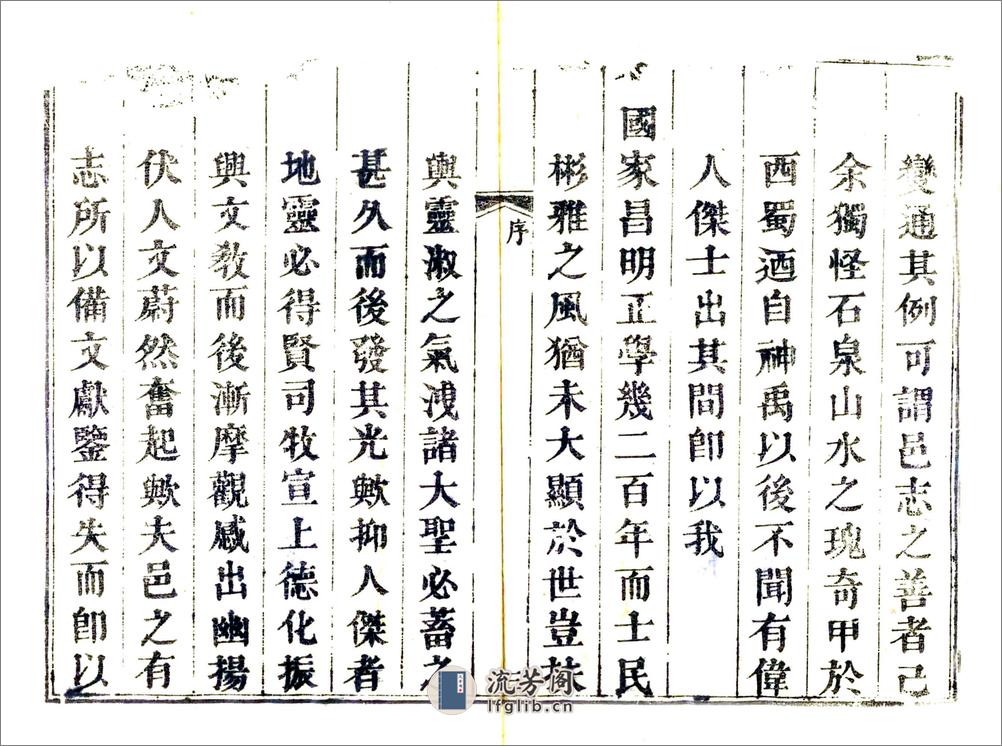 變通其例可謂邑志之善者已
余獨怪石泉山水之瑰奇甲於
西蜀迺自神禹以後不聞有偉
人傑士出其間卽以我
國家昌明正學幾二百年而士民
彬雅之風猶未大顯於世豈扶
序
輿靈淑之氣洩諸大聖必蓄之
甚久而後發其光歟抑人傑者
地靈必得賢司牧宣上德化振
興文教而後漸摩觀感出幽揚
伏人文蔚然奮起歟夫邑之有
志所以備文獻鑒得失而卽以
流芳阁
lfglib.cn